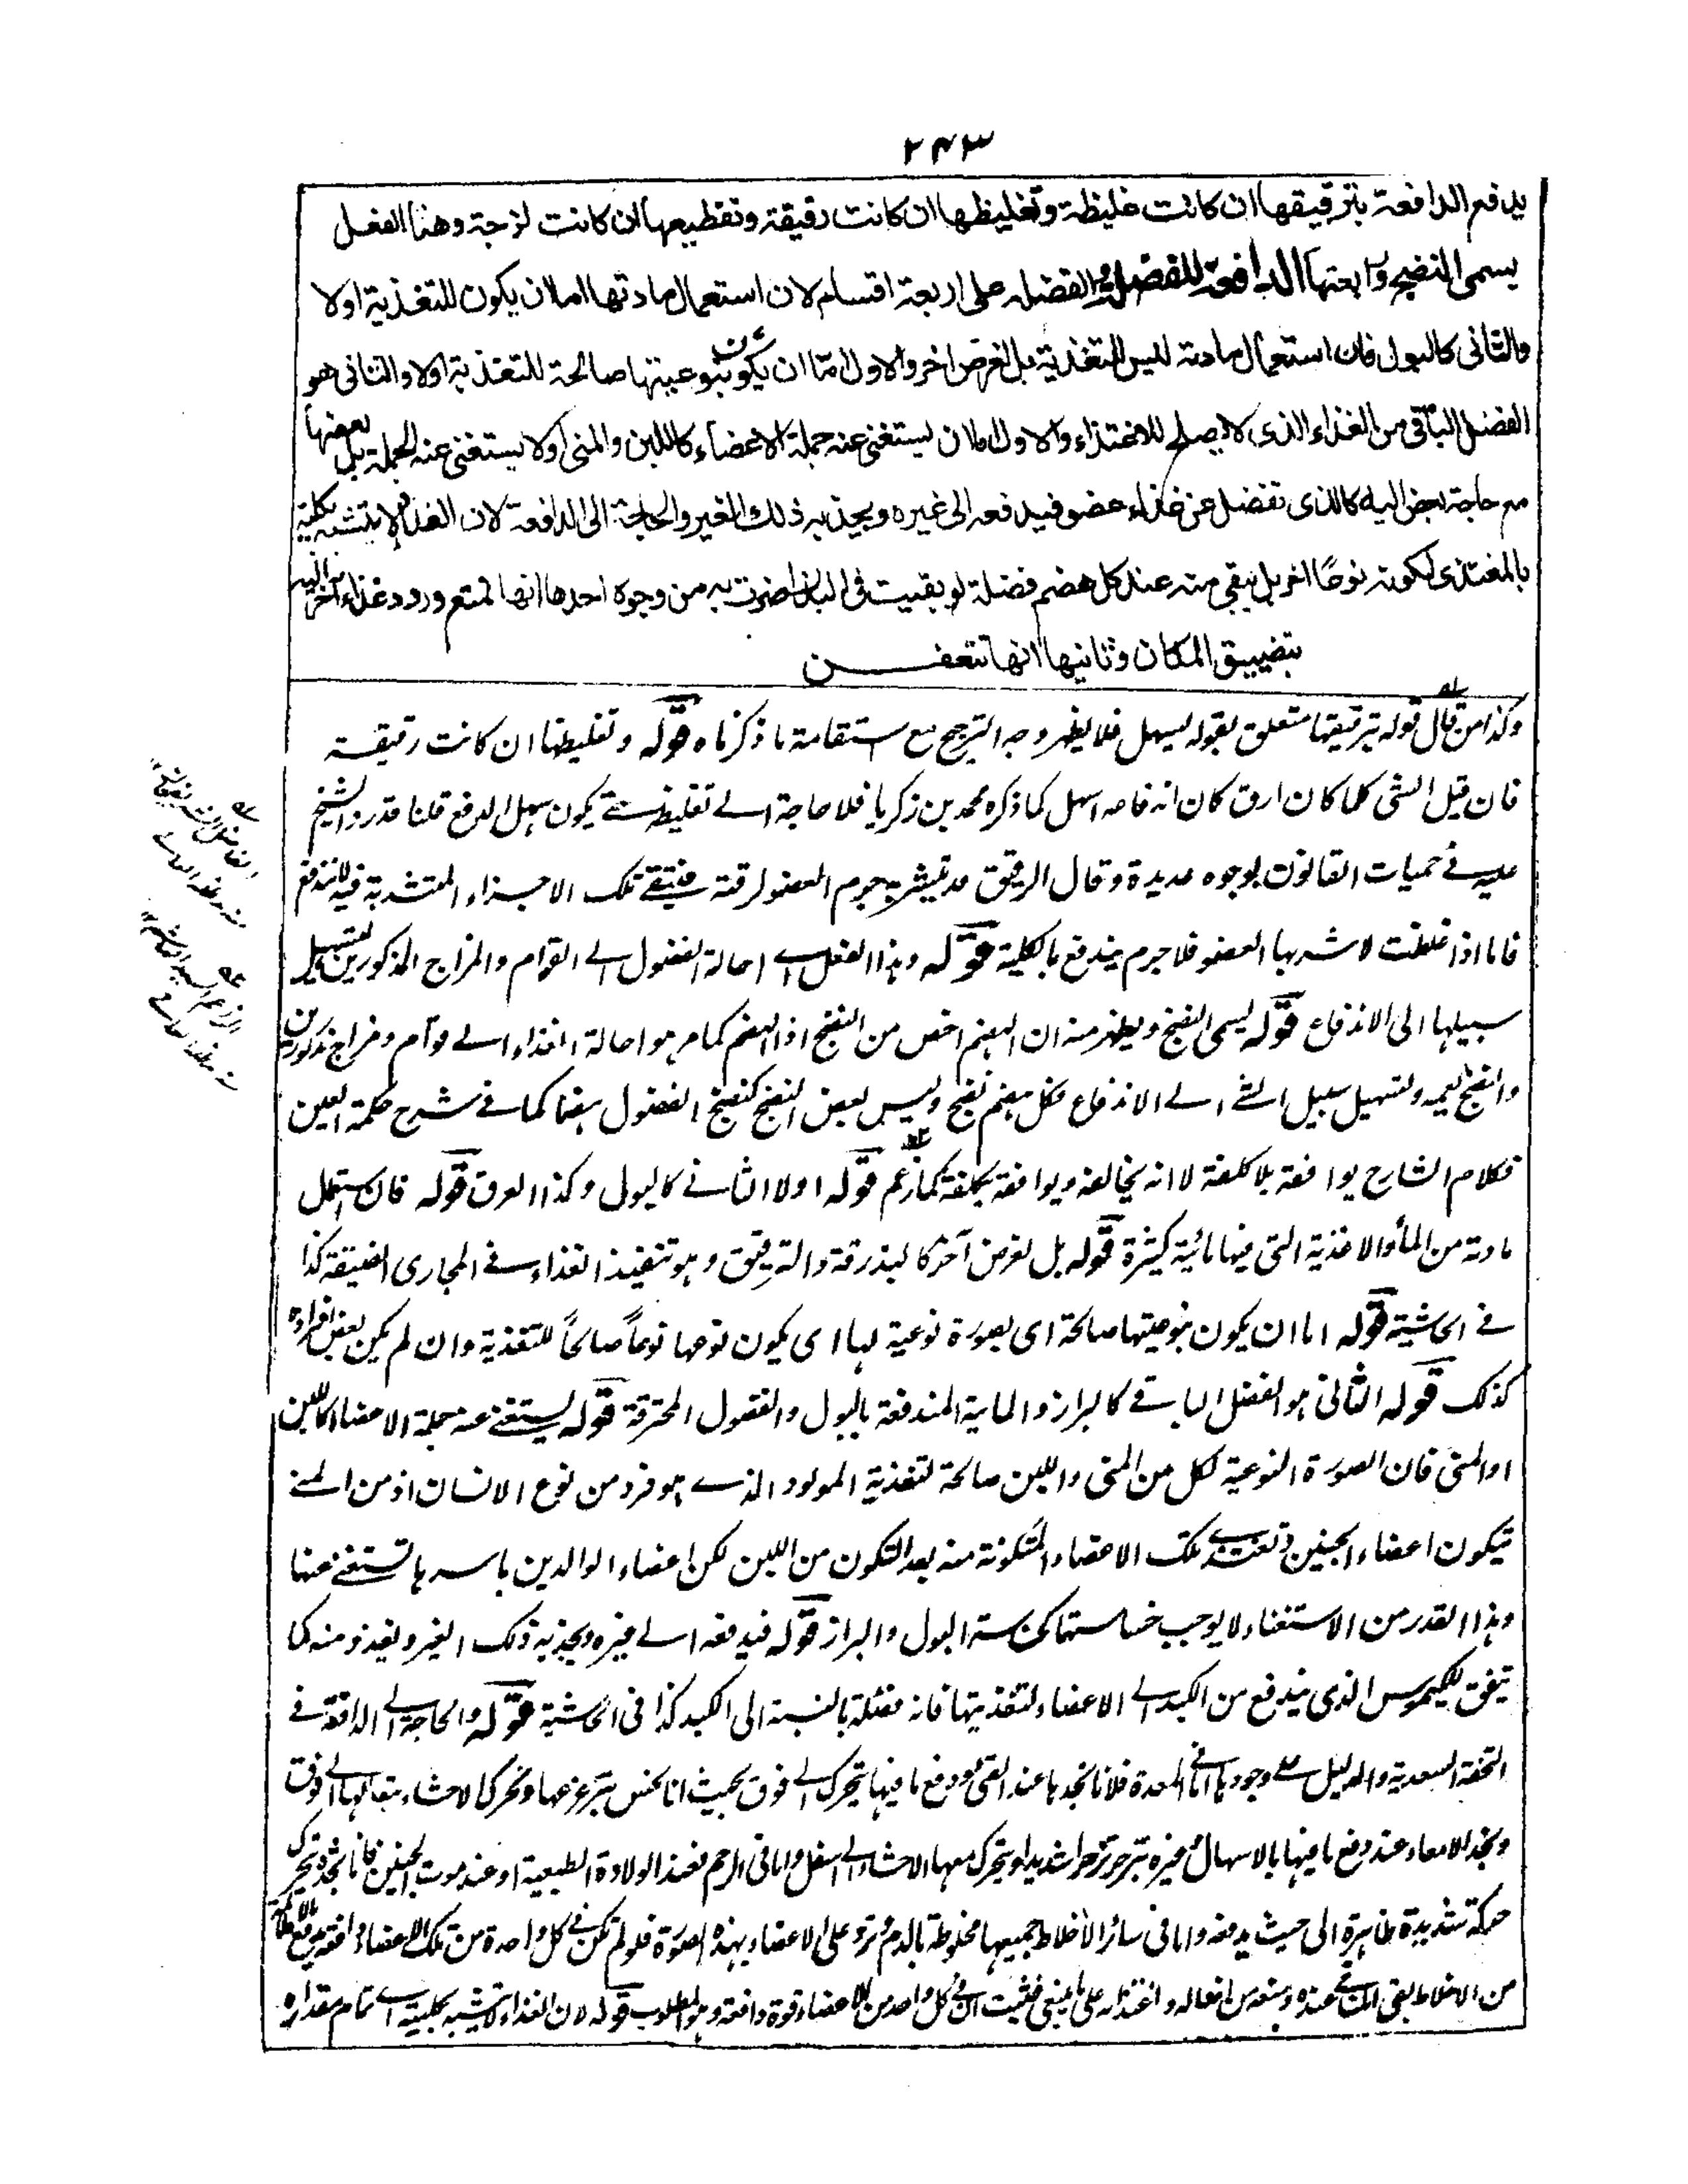 ٢٤٣
يدفع الدافعة بترقيقها ان كانت غليظة وتغليظها ان كانت رقيقة وتقطيعها ان كانت لزجة وهذا الفعل
يسمى النضج ورابعتها الدافعة للفضل والفضل على اربعة اقسام لان استعمال مادتها اما لان يكون للتغذية اولا
والثانى كالبول فان استعمال مادته ليس للتغذية بل لغرض اخر والاول اما ان يكون بنوعيتها صالحة للتغذية اولا والثانى هو
الفضل الباقى من الغذاء الذى لا يصلح للاغتذاء والاول اما ان يستغنى عنه جملة الاعضاء كاللبن والمنى اولا يستغنى عنه الجملة بل بعضها
مع حاجة بعض اليه كالذى تفضل عن غذاء عضو فيدفعه الى غيره ويجذبه ذلك الغير والحاجة الى الدافعة لان الغذاء لا يتشبه بكلية
بالمغتذى لكونه نوعًا اخر بل يبقى منه عند كل هضم فضلة لو بقيت فى البدن اضرت به من وجوه احدها انها تمنع ورود غذاء آخر اليه
بتضييق المكان وثانيها انها تتعفن
وكذا من قال قوله بترقيقها متعلق بقوله ليسهل فلا يظهر وجه الترجيح مع استقامة ما ذكرناه قوله وتغليظها ان كانت رقيقة
فان قيل الشى كلما كان ارق كان اندفاعه اسهل كما ذكره محمد بن زكريا فلا حاجة الے تغليظه حتے يكون سهل الدفع قلنا قد رد الشيخ
عليه فے حميات القانون بوجوه عديدة وقال الرقيق قد يتشربه جرم العضو لرقته فيبقے تلك الاجزاء المتشربة فيه لا تندفع
فاما اذا غلظت لا شربها العضو فلا جرم يندفع بالكلية قوله وهذا الفعل اے احالة الفضول الے القوام والمزاج المذكورين لتسهيل
سبيلها الى الاندفاع قوله يسمى النضج ويظهر منه ان الهضم اخص من النضج اذ الهضم كما مر هو احالة الغذاء الے قوام ومزاج مذكورين
والنضج يعمه وتسهيل سبيل الشے الے الاندفاع فكل هضم نضج وليس بعض النضج كنضج الفضول هضما كما فے شرح حكمة العين
فكلام الشارح يوافقه بلا كلفة لا انه يخالفه ويوافقه بكلفة كما زعم قوله اولا الثانے كالبول وكذا العرق قوله فان استعمال
مادته من الماء والاغذية التى فيها مائية كثيرة قوله بل لغرض آخر كالبذرقة والترقيق وهو تنفيذ الغذاء فے المجارى الضيقة كذا
فے الحاشية قوله اما ان يكون بنوعيتها صالحة اى بصورة نوعية لها اى يكون نوعها نوعاً صالحاً للتغذية وان لم يكن بعض افراده
كذلك قوله الثانى هو الفضل الباقے كالبراز والمائية المندفعة بالبول والفضول المحترقة قوله يستغنے عنه جملة الاعضاء كاللبن
او المنى فان الصورة النوعية لكل من المنى واللبن صالحة لتغذية المولود الذے هو فرد من نوع الانسان اذ من المنے
تتكون اعضاء الجنين وتغتذے تلك الاعضاء المتكونة منه بعد التكون من اللبن لكن اعضاء الوالدين باسرها تستغنے عنها
وهذا القدر من الاستغناء لا يوجب خساستها كخساسة البول والبراز قوله فيدفعه الے غيره ويجذبه ذلك الغير ويغتذ ومنه كما
يتفق للكيموس الذى يندفع من الكبد الے الاعضاء لتغذيتها فانه فضلة بالنسبة الى الكبد كذا فى الحاشية قوله والحاجة الے الدافعة فے
التحفة السعدية والدليل علے وجودها اما فے المعدة فلانا نجدها عند القئ ودفع ما فيها تتحرك الے فوق بحيث انا نحس بتزعزعها وتحرك الاحشاء بتبعا لها الے فوق
ونجد الامعاء عند دفع ما فيها بالاسهال وغيره تتزحر تزحرا شديدا وتتحرك معها الاحشاء الے اسفل واما فى الرحم فعند الولادة الطبيعية او عند موت الجنين فانا نجده تتحرك
حركة شديدة ظاهرة الى حيث يدفعه واما فى سائر الاعضاء فلان الاخلاط جميعها مخلوطة بالدم وترد على الاعضاء بهذه الصورة فلو لم تكن فے كل واحدة من تلك الاعضاء دافعة
من الاخلاط لبقى عنده ومنعه من افعاله واغتذائه على ما ينبغى فثبت ان فے كل واحد من الاعضاء قوة دافعة وهو المطلوب قوله لان الغذاء لا يتشبه بكليته اے تمام مقداره